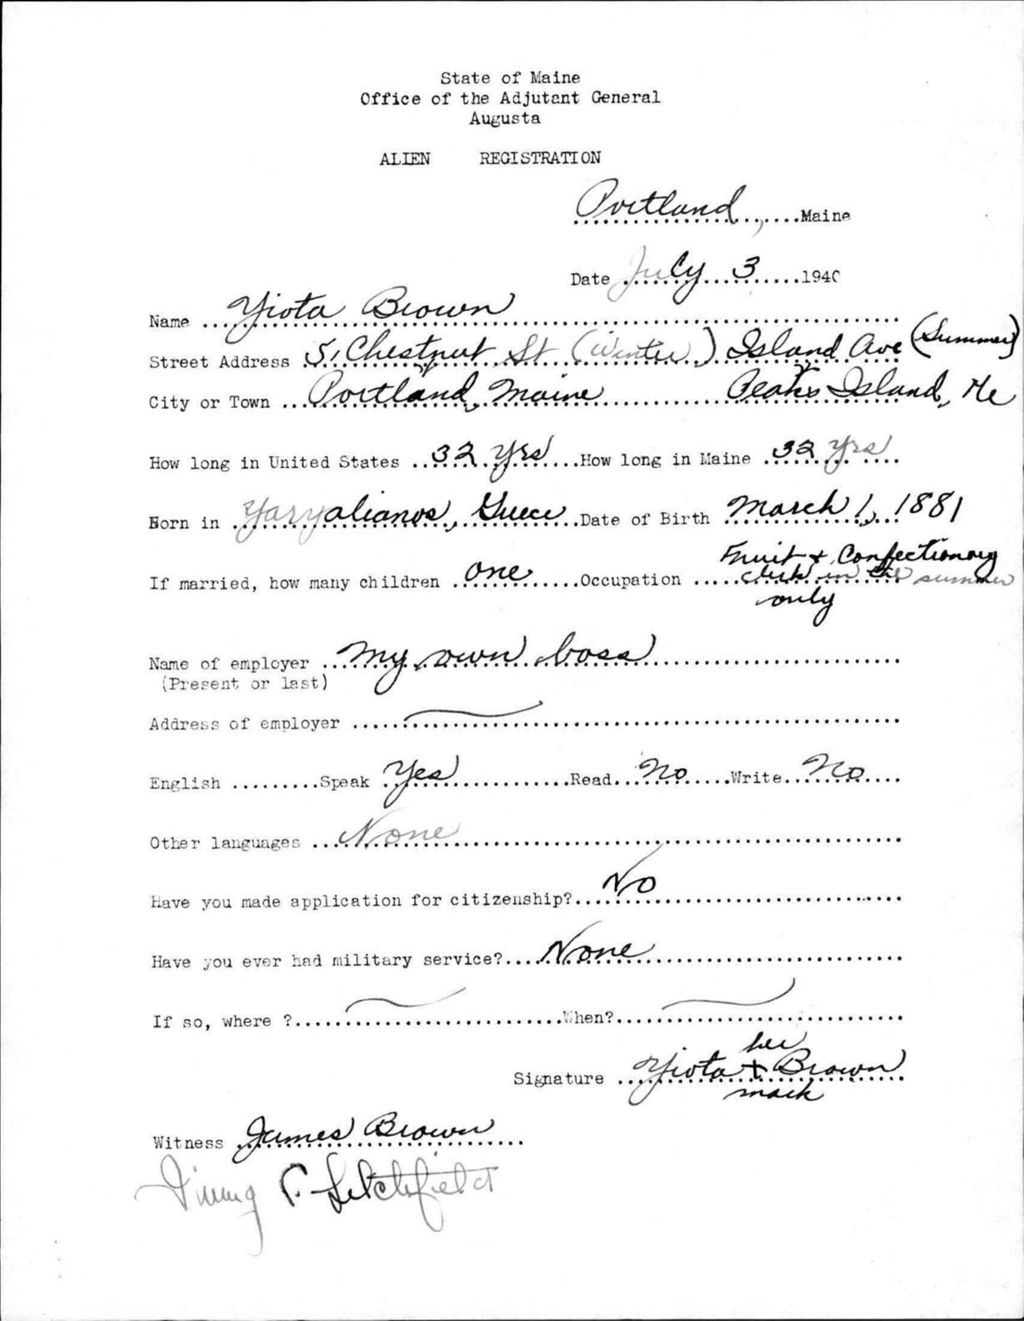 State of Maine
Office of the Adjutant General
Augusta
ALIEN REGISTRATION
Portland, Maine
Date July 3 1940
Name Yiota Brown
Street Address 51 Chestnut St (Winter) Island Ave (Summer)
City or Town Portland, Maine Peaks Island, Me
How long in United States 32 Yrs How long in Maine 32 Yrs
Born in Yaryalianos, Greece Date of Birth March 1, 1881
If married, how many children one Occupation Fruit + Confectionary
clerk in the summer
only
Name of employer My own boss
(Present or last)
Address of employer
English Speak Yes Read No Write No
Other languages None
Have you made application for citizenship? No
Have you ever had military service? None
If so, where ? When?
her
Signature Yiota + Brown
mark
Witness James Brown
Litchfield